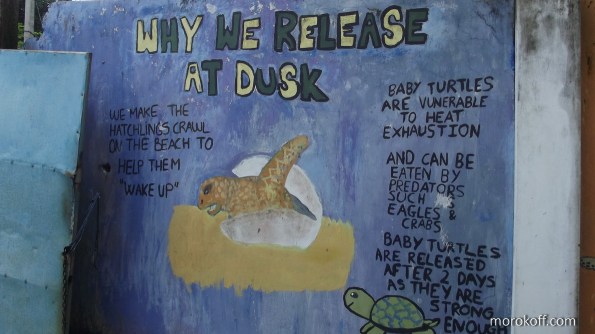 WHY WE RELEASE
AT DUSK
WE MAKE THE
HATCHLINGS CRAWL
ON THE BEACH TO
HELP THEM
"WAKE UP"
BABY TURTLES
ARE VUNERABLE
TO HEAT
EXHAUSTION
AND CAN BE
EATEN BY
PREDATORS
SUCH AS
EAGLES &
CRABS
BABY TURTLES
ARE RELEASED
AFTER 2 DAYS
AS THEY ARE
STRONG
ENOUGH
morokoff.com